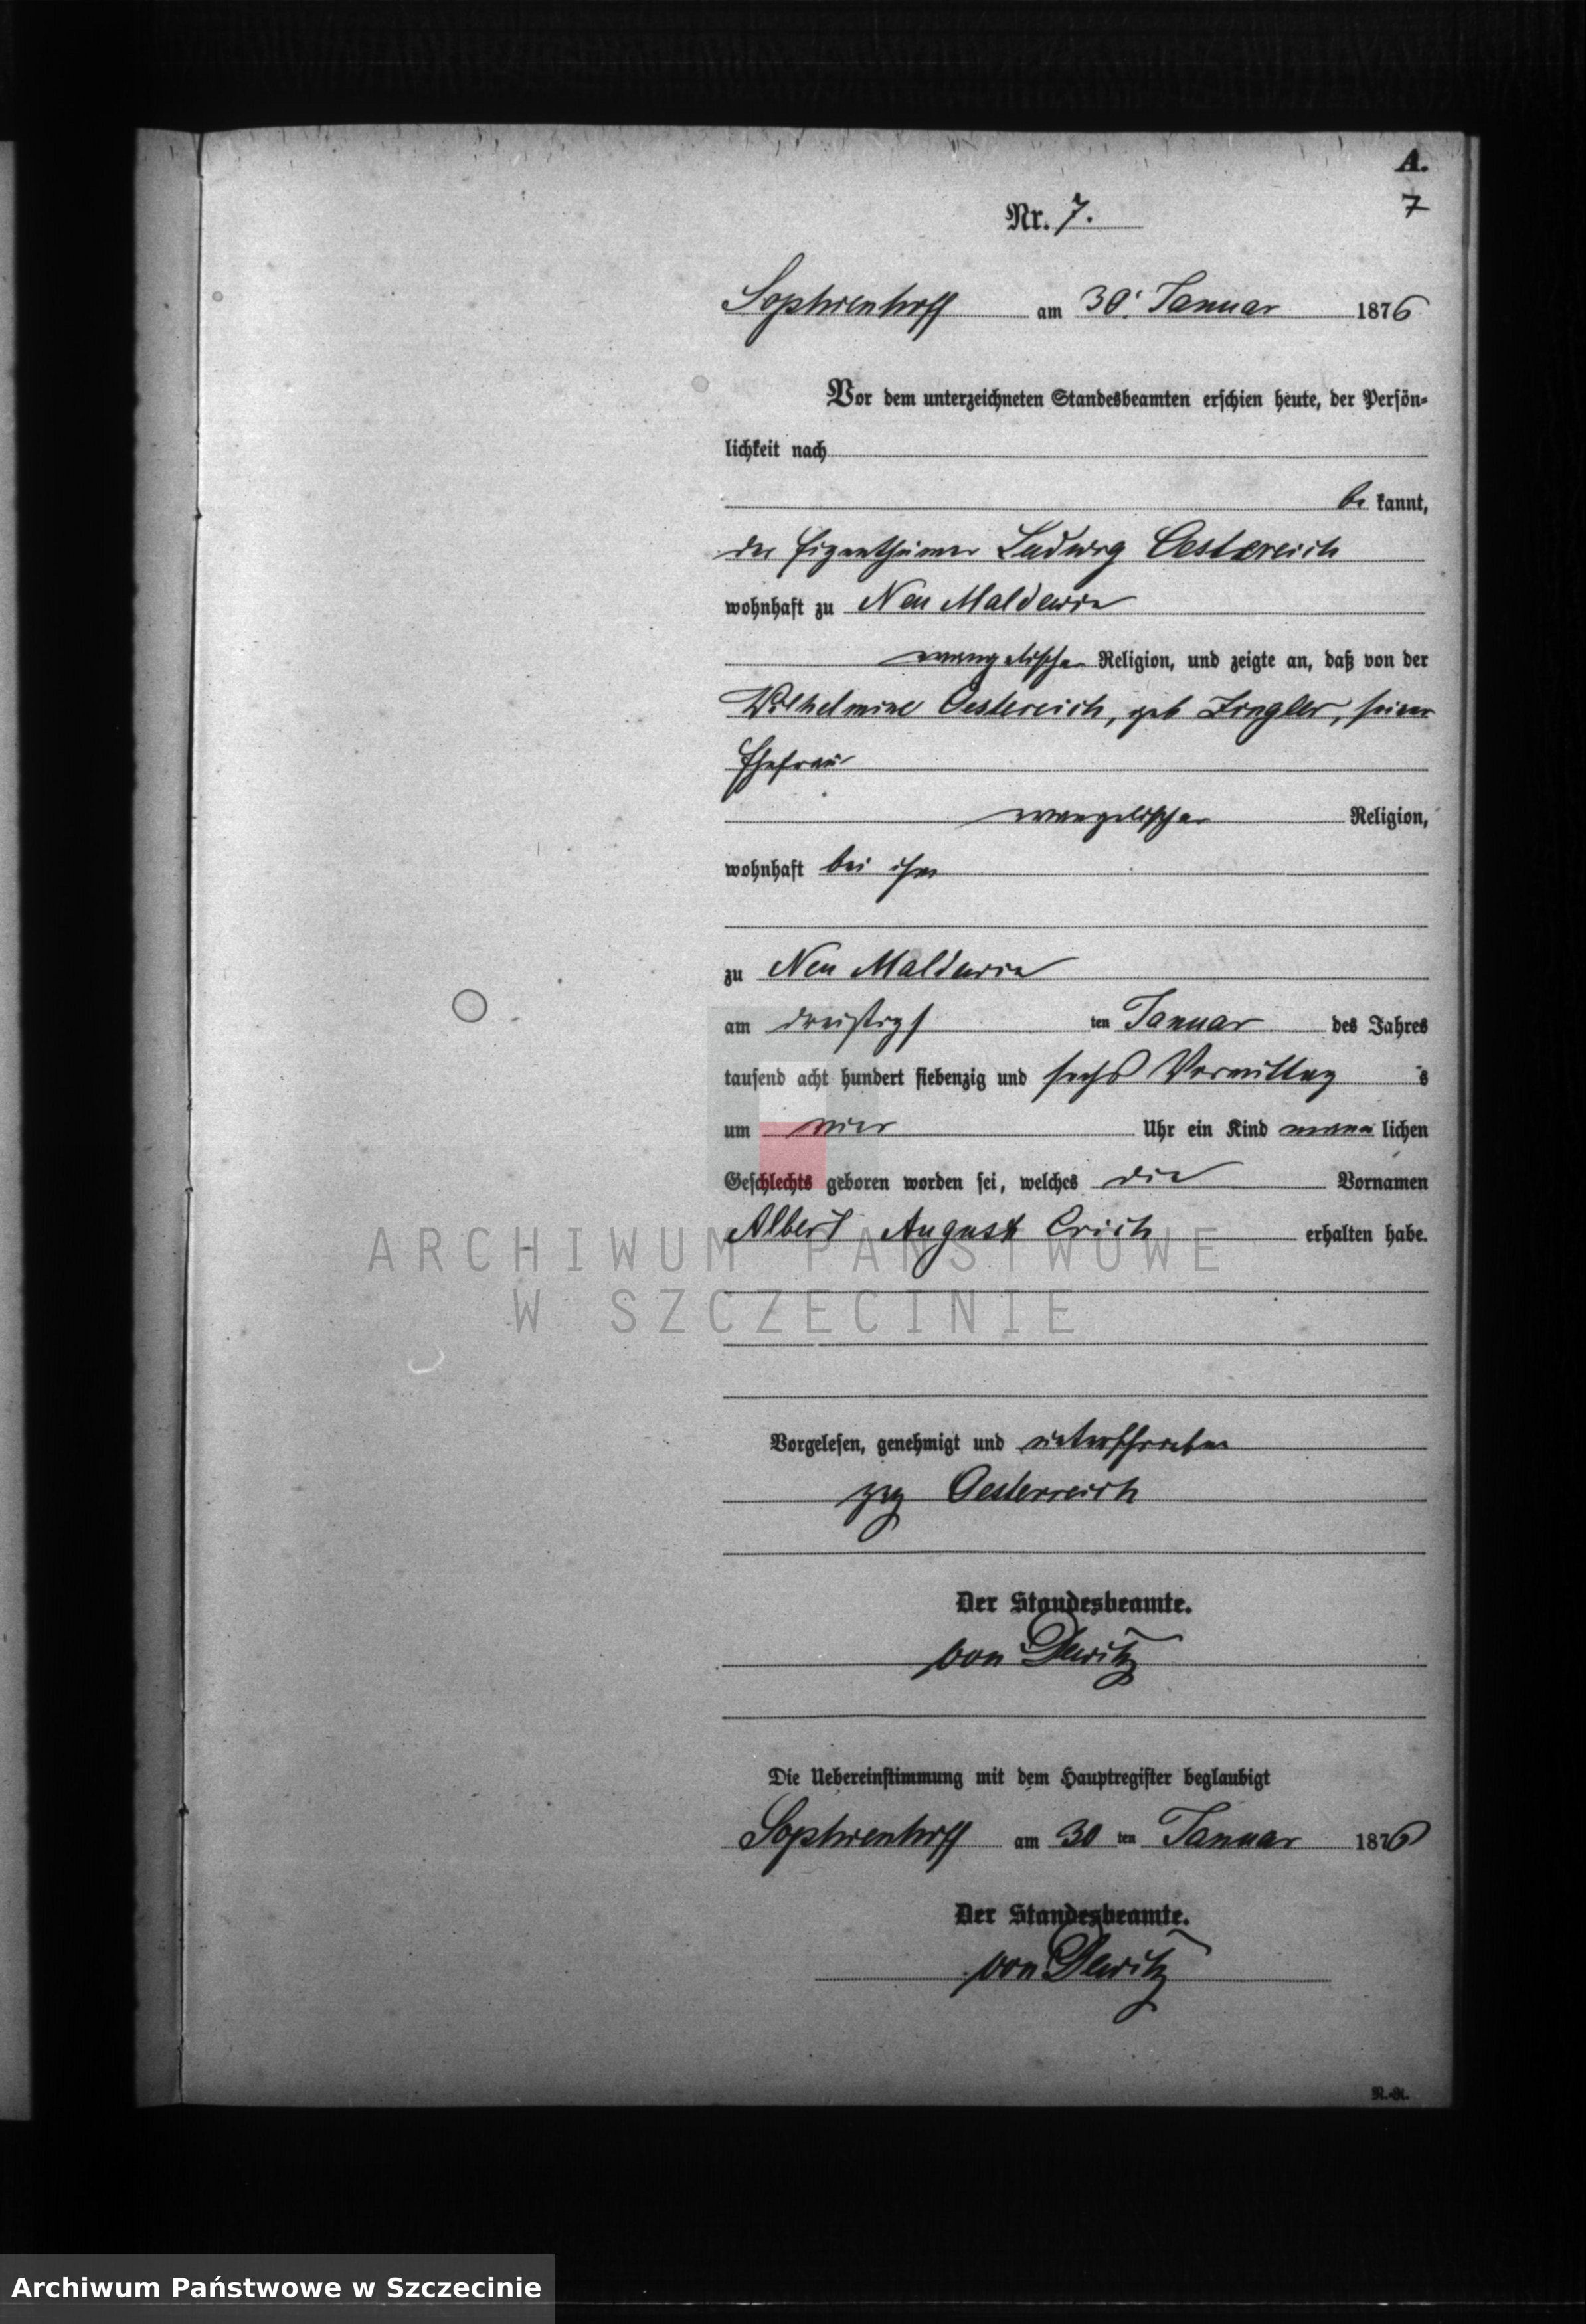 A.
7
Nr. 7.
Sophienhoff am 30. Januar 1876
Vor dem unterzeichneten Standesbeamten erschien heute, der Persön-
lichkeit nach
be kannt,
der Eigenthümer Ludwig Oestereich
wohnhaft zu Neu Maldewin
evangelischer Religion, und zeigte an, daß von der
Wilhelmine Oestereich, geb Zingler, seiner
Ehefrau
evangelischer Religion,
wohnhaft bei ihm
zu Neu Maldewin
am dreißigst ten Januar des Jahres
tausend acht hundert siebenzig und sechs Vormittag s
um vier Uhr ein Kind männ lichen
Geschlechts geboren worden sei, welches die Vornamen
Albert August Erich erhalten habe.
ARCHIWUM PAŃSTWOWE
W SZCZECINIE
Vorgelesen, genehmigt und unterschrieben
gez Oesterreich
Der Standesbeamte.
von Dewitz
Die Uebereinstimmung mit dem Hauptregister beglaubigt
Sophienhoff am 30 ten Januar 1876
Der Standesbeamte.
von Dewitz
Archiwum Państwowe w Szczecinie